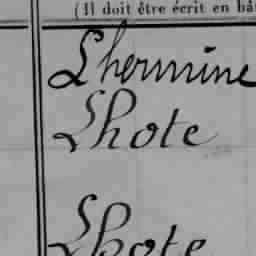 (Il doit être écrit en bâ
Lhermine
Lhote
Lhote